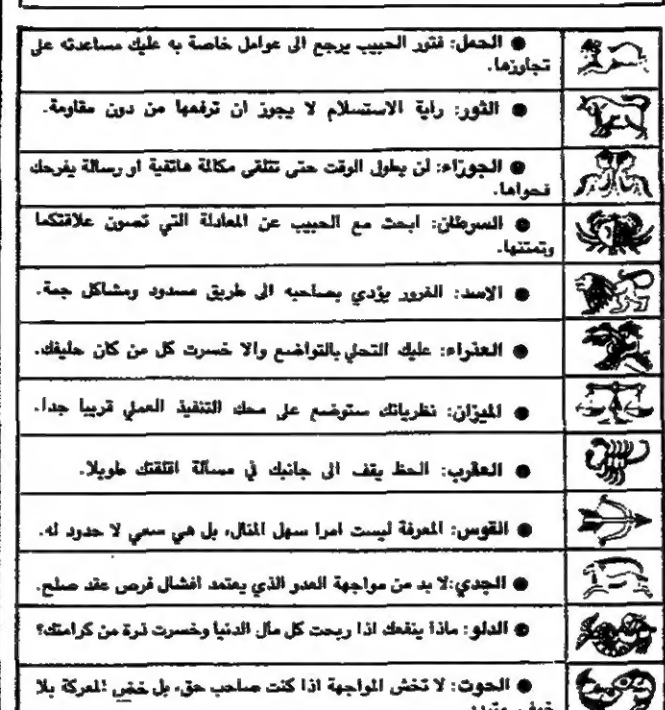 ● الحمل: فتور الحبيب يرجع الى عوامل خاصة به عليك مساعدته على
تجاوزها.
● الثور: راية الاستسلام لا يجوز ان ترفعها من دون مقاومة.
● الجوزاء: لن يطول الوقت حتى تتلقى مكالمة هاتفية او رسالة يفرحك
فحواها.
● السرطان: ابحث مع الحبيب عن المعادلة التي تصون علاقتكما
وتمتنها.
● الاسد: الغرور يؤدي بصاحبه الى طريق مسدود ومشاكل جمة.
● العذراء: عليك التحلي بالتواضع والا خسرت كل من كان حليفك.
● الميزان: نظرياتك ستوضع على محك التنفيذ العملي قريبا جدا.
● العقرب: الحظ يقف الى جانبك في مسألة اقلقتك طويلا.
● القوس: المعرفة ليست امرا سهل المنال، بل هي سعي لا حدود له.
● الجدي: لا بد من مواجهة العدو الذي يعتمد افشال فرص عقد صلح.
● الدلو: ماذا ينفعك اذا ربحت كل مال الدنيا وخسرت ذرة من كرامتك؟
● الحوت: لا تخش المواجهة اذا كنت صاحب حق، بل خض المعركة بلا
خوف